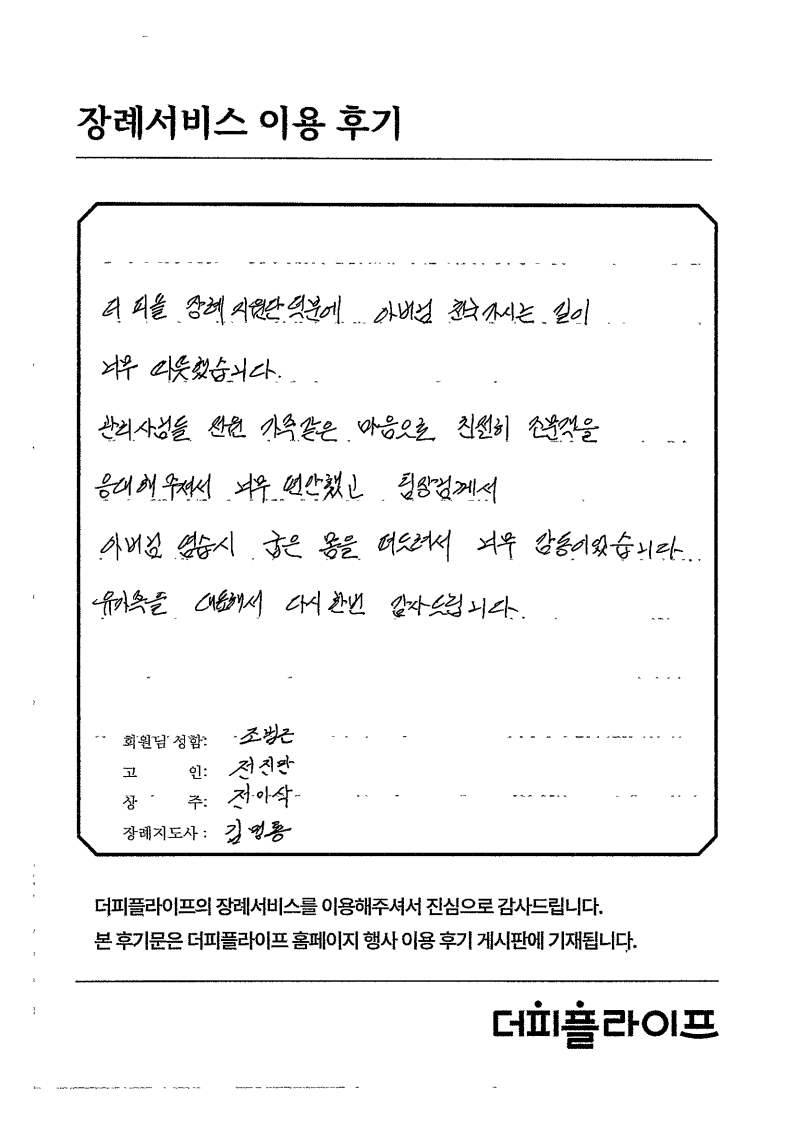 장례서비스 이용 후기
더 피플 장례지원단 덕분에 아버님 천국가시는 길이
너무 따뜻했습니다.
관리사님들 전원 가족같은 마음으로 친절히 조문객을
응대해주셔서 너무 편안했고 팀장님께서
아버님 염습시 굽은 몸을 펴드려서 너무 감동이었습니다.
유가족을 대표해서 다시 한번 감사드립니다.
회원님 성함: 조범근
고 인: 전진만
상 주: 전이삭
장례지도사 : 김명룡
더피플라이프의 장례서비스를 이용해주셔서 진심으로 감사드립니다.
본 후기문은 더피플라이프 홈페이지 행사 이용 후기 게시판에 기재됩니다.
더피플라이프